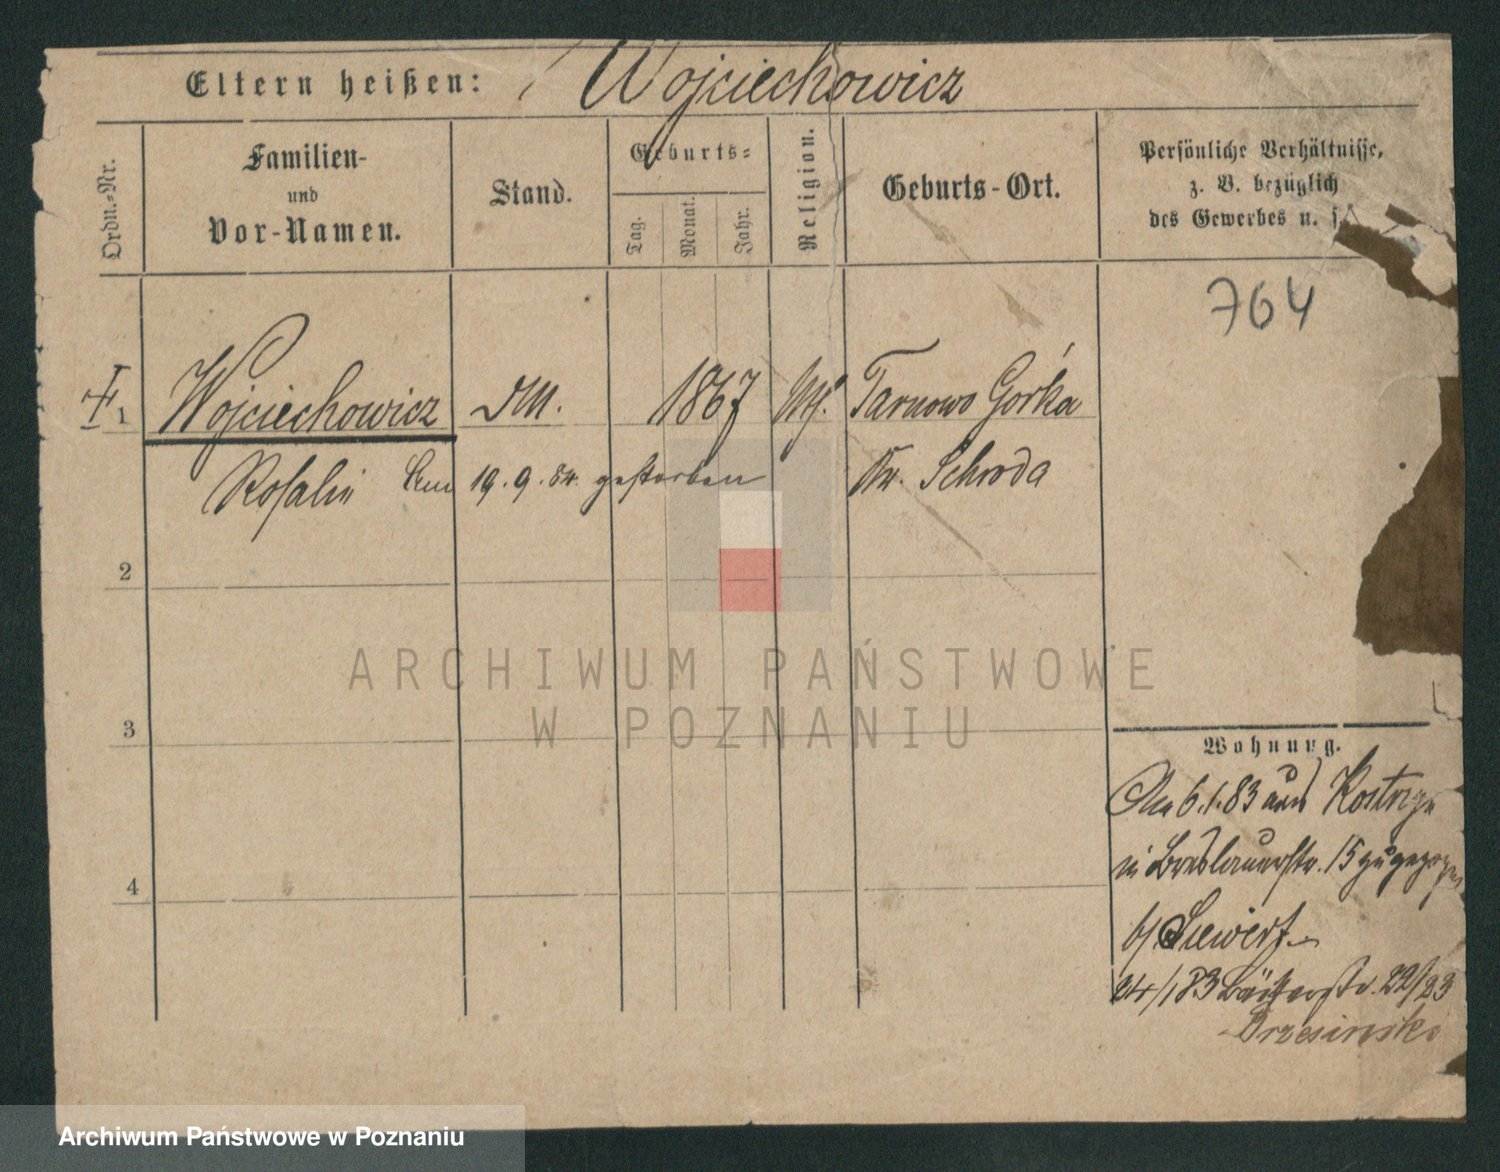 Eltern heißen: Wojciechowicz
Ordn.-Nr.
Familien-
und
Vor-Namen.
Stand.
Geburts-
Tag.
Monat.
Jahr.
Religion.
Geburts-Ort.
Persönliche Verhältnisse,
z. B. bezüglich
des Gewerbes u. s.
764
1 Wojciechowicz 1867 Tarnowo Górka
Rosalie Am 19.9.84. gestorben Kr. Schroda
2
3
4
Wohnung.
Am 6.1.83 aus
in Breslauerstr. 15 zugezogen
b/ Siewert
24/1 83 Bäckerstr. 22/23
Brzesinski
ARCHIWUM PAŃSTWOWE
W POZNANIU
Archiwum Państwowe w Poznaniu